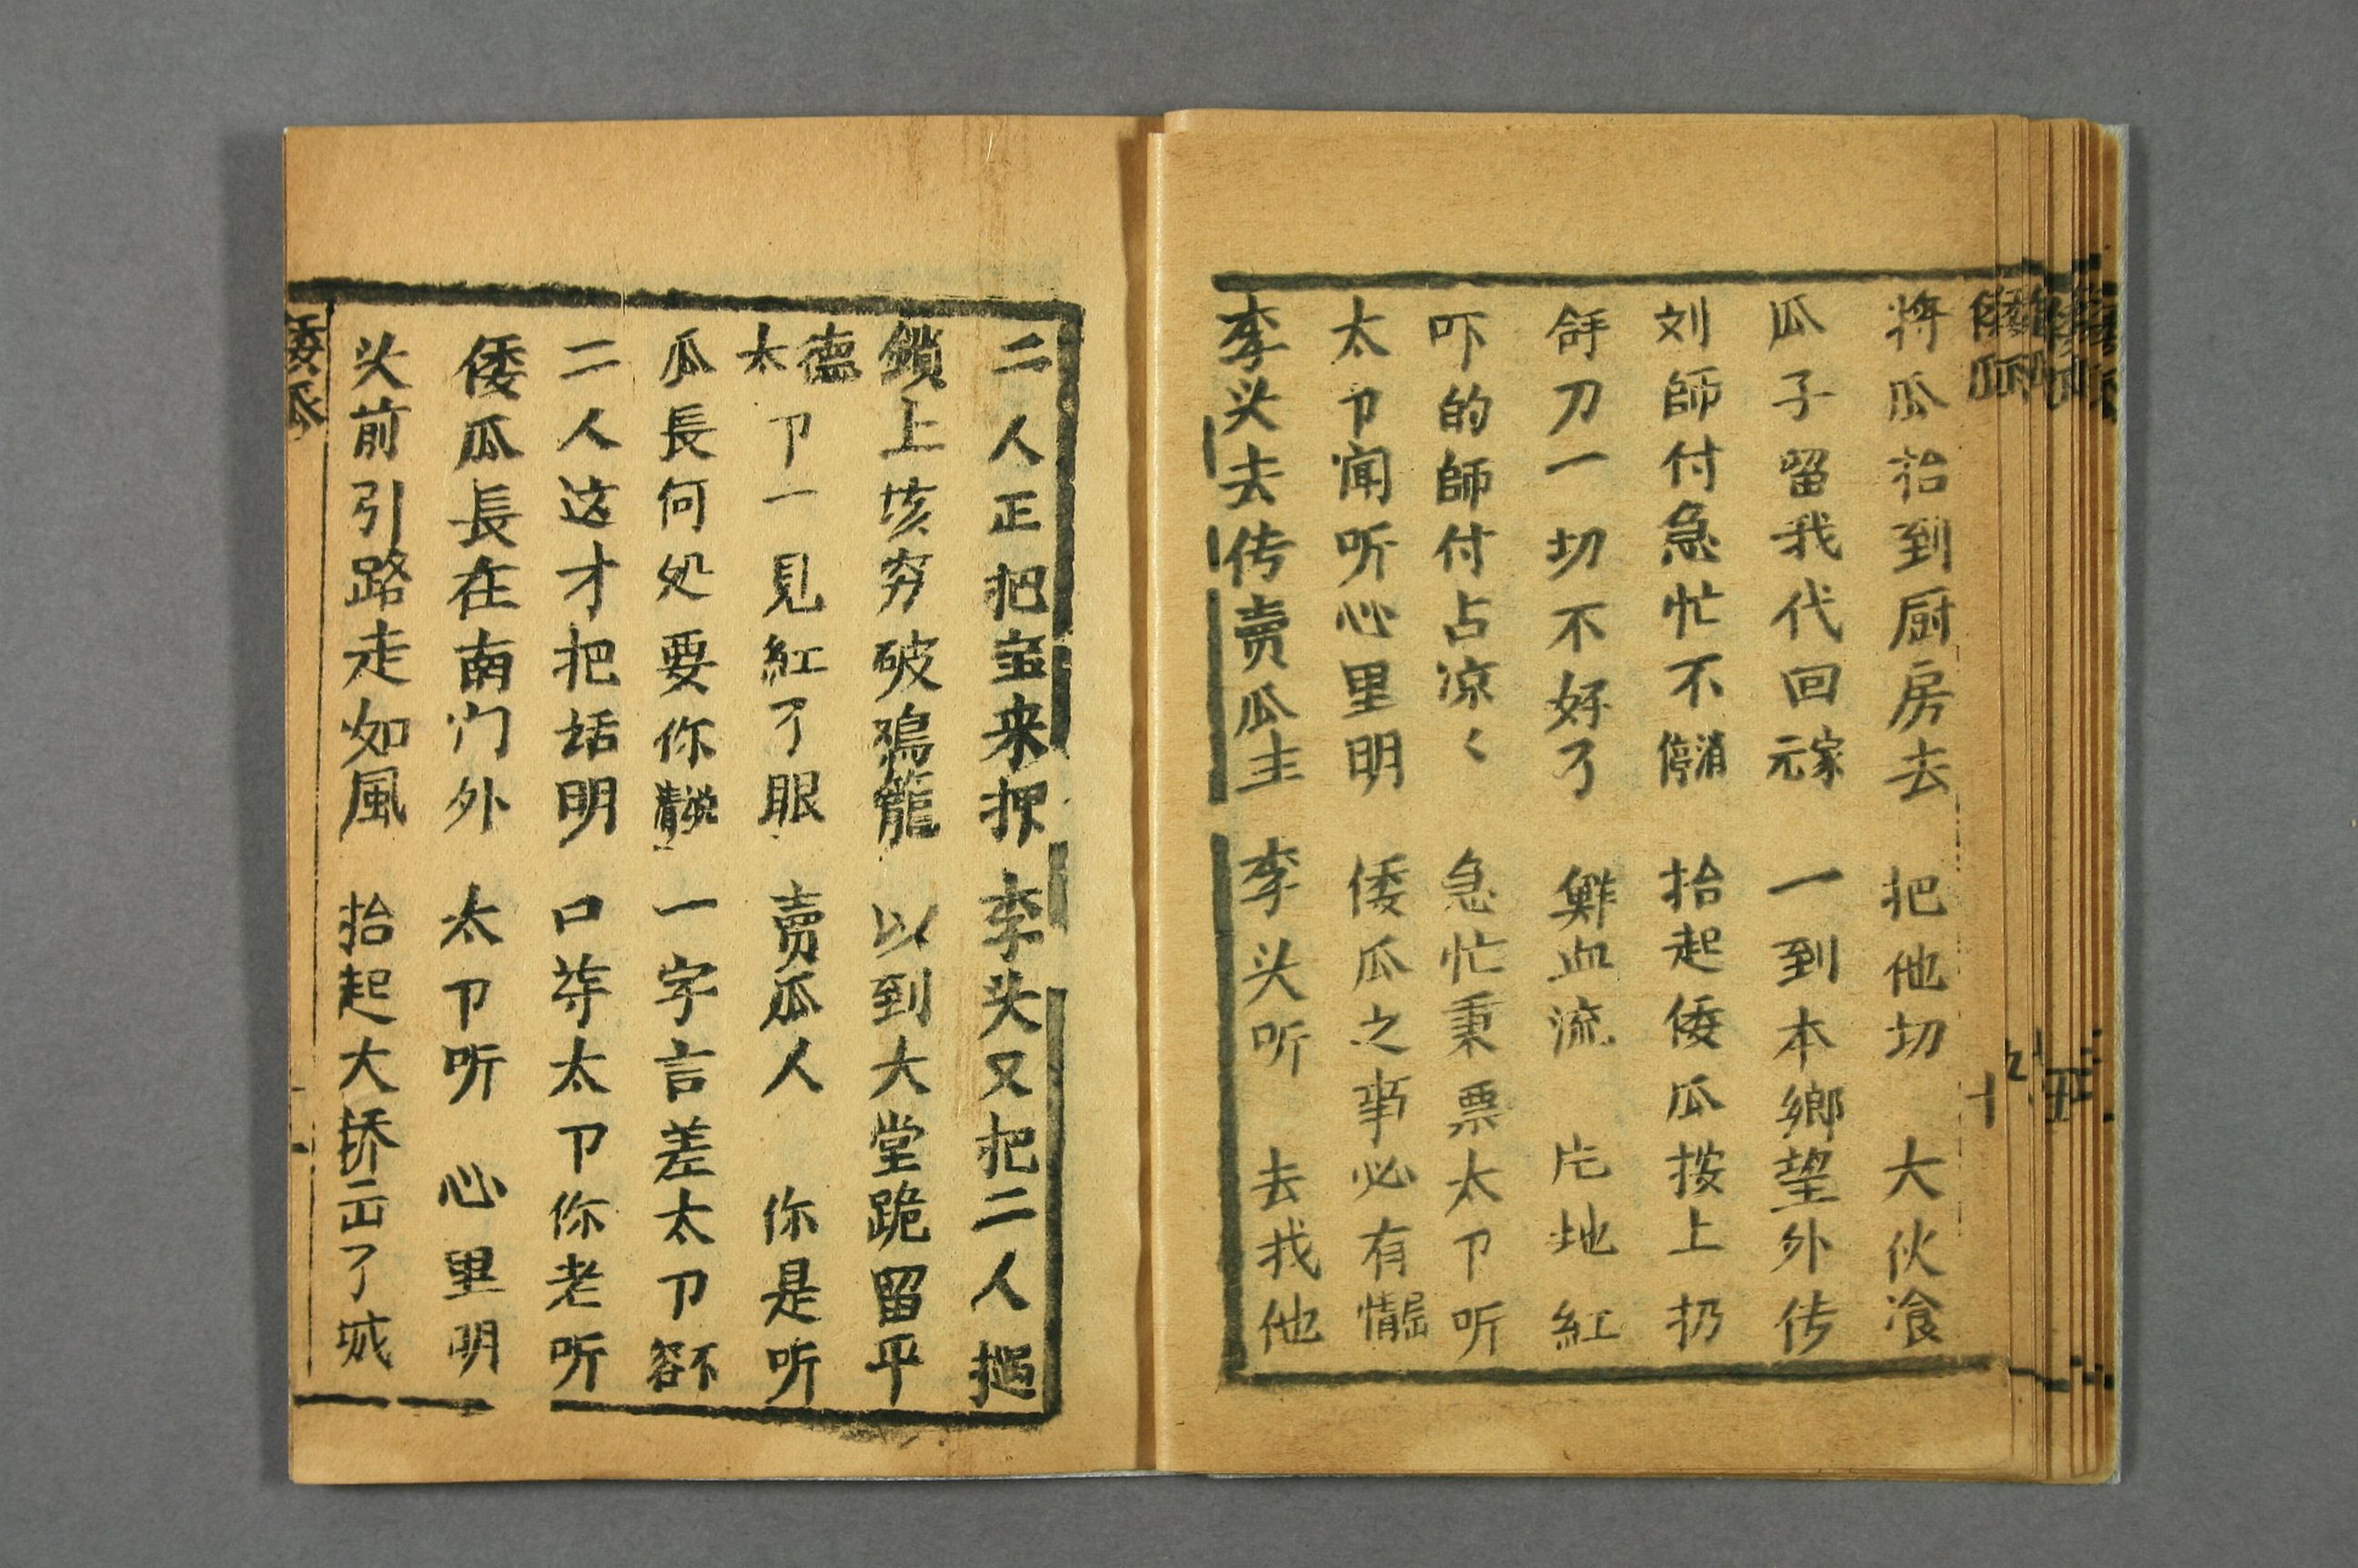 倭瓜 十
将瓜抬到厨房去 把他切 大伙飡
瓜子留我代回元家 一到本鄉望外传
刘師付急忙不停消 抬起倭瓜按上扔
舒刀一切不好了 鲜血流 片地紅
吓的師付占凉く 急忙秉票太卩听
太卩闻听心里明 倭瓜之事必有情屈
李头去传卖瓜主 李头听 去找他
二人正把宝来押 李头又把二人摇
鎖上垓穷破鴉籠 以到大堂跪留平
德太卩一見紅了眼 賣瓜人 你是听
瓜長何処要你説清 一字言差太卩不容
二人这才把话明 口荐太卩你老听
倭瓜長在南门外 太卩听 心里明
头前引路走如風 抬起大挢云了城
倭瓜